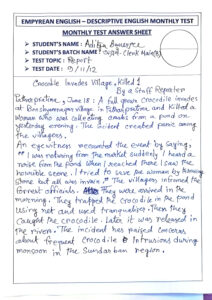 EMPYREAN ENGLISH – DESCRIPTIVE ENGLISH MONTHLY TEST
MONTHLY TEST ANSWER SHEET
➢ STUDENT'S NAME : Aditya Banerjee
➢ STUDENT'S BATCH NAME : Clerk Mains
➢ TEST TOPIC : Report
➢ TEST DATE : 9/11/12
Crocodile Invades Village, Killed 1
By a Staff Reporter
Patharpratima, June 18 : A full grown crocodile invades
at village in Patharpratima and Killed a
woman who was collecting crabs from a pond on
yesterday evening. The incident created panic among
the villagers.
An eyewitness recounted the event by saying,
" I was returning from the market suddenly I heard a
noise from the pond when I reached there I saw the
horrible scene. I tried to save the woman by
stone but all was invain." The villagers informed the
forrest officials. They were arrived in the
morning. They trapped the crocodile in the pond
using net and used tranquilizer. Then they
caught the crocodile. Later it was released in
the river. The incident has raised concerns
about frequent crocodile intrusions during
monsoon in the Sundarban region.